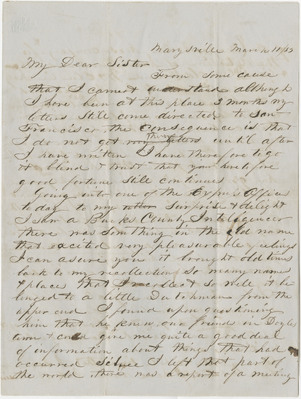 Marysville March 10/53
My Dear Sister
From some cause
that I cannot understand although
I have been at this place 3 months my
letters still come directed to San
Francisco the consequence is that
I do not get until after
I have written I have therefore to go
it blind & trust that your
good fortune still continues
Going into one of the Express Offices
today to my surprise & delight
I saw a Bucks County Intelligencer
there was something in the old name
that excited very pleasurable feelings
I can assure you it brought old times
back to my recollection so many names
& places that I recollect so well it be
longed to a little Dutchman from the
upper end I found upon questioning
him that he knew our friends in Doyles
town & could give me quite a good deal
of information about things that had
occurred since I left that part of
the world there was a report of a meeting